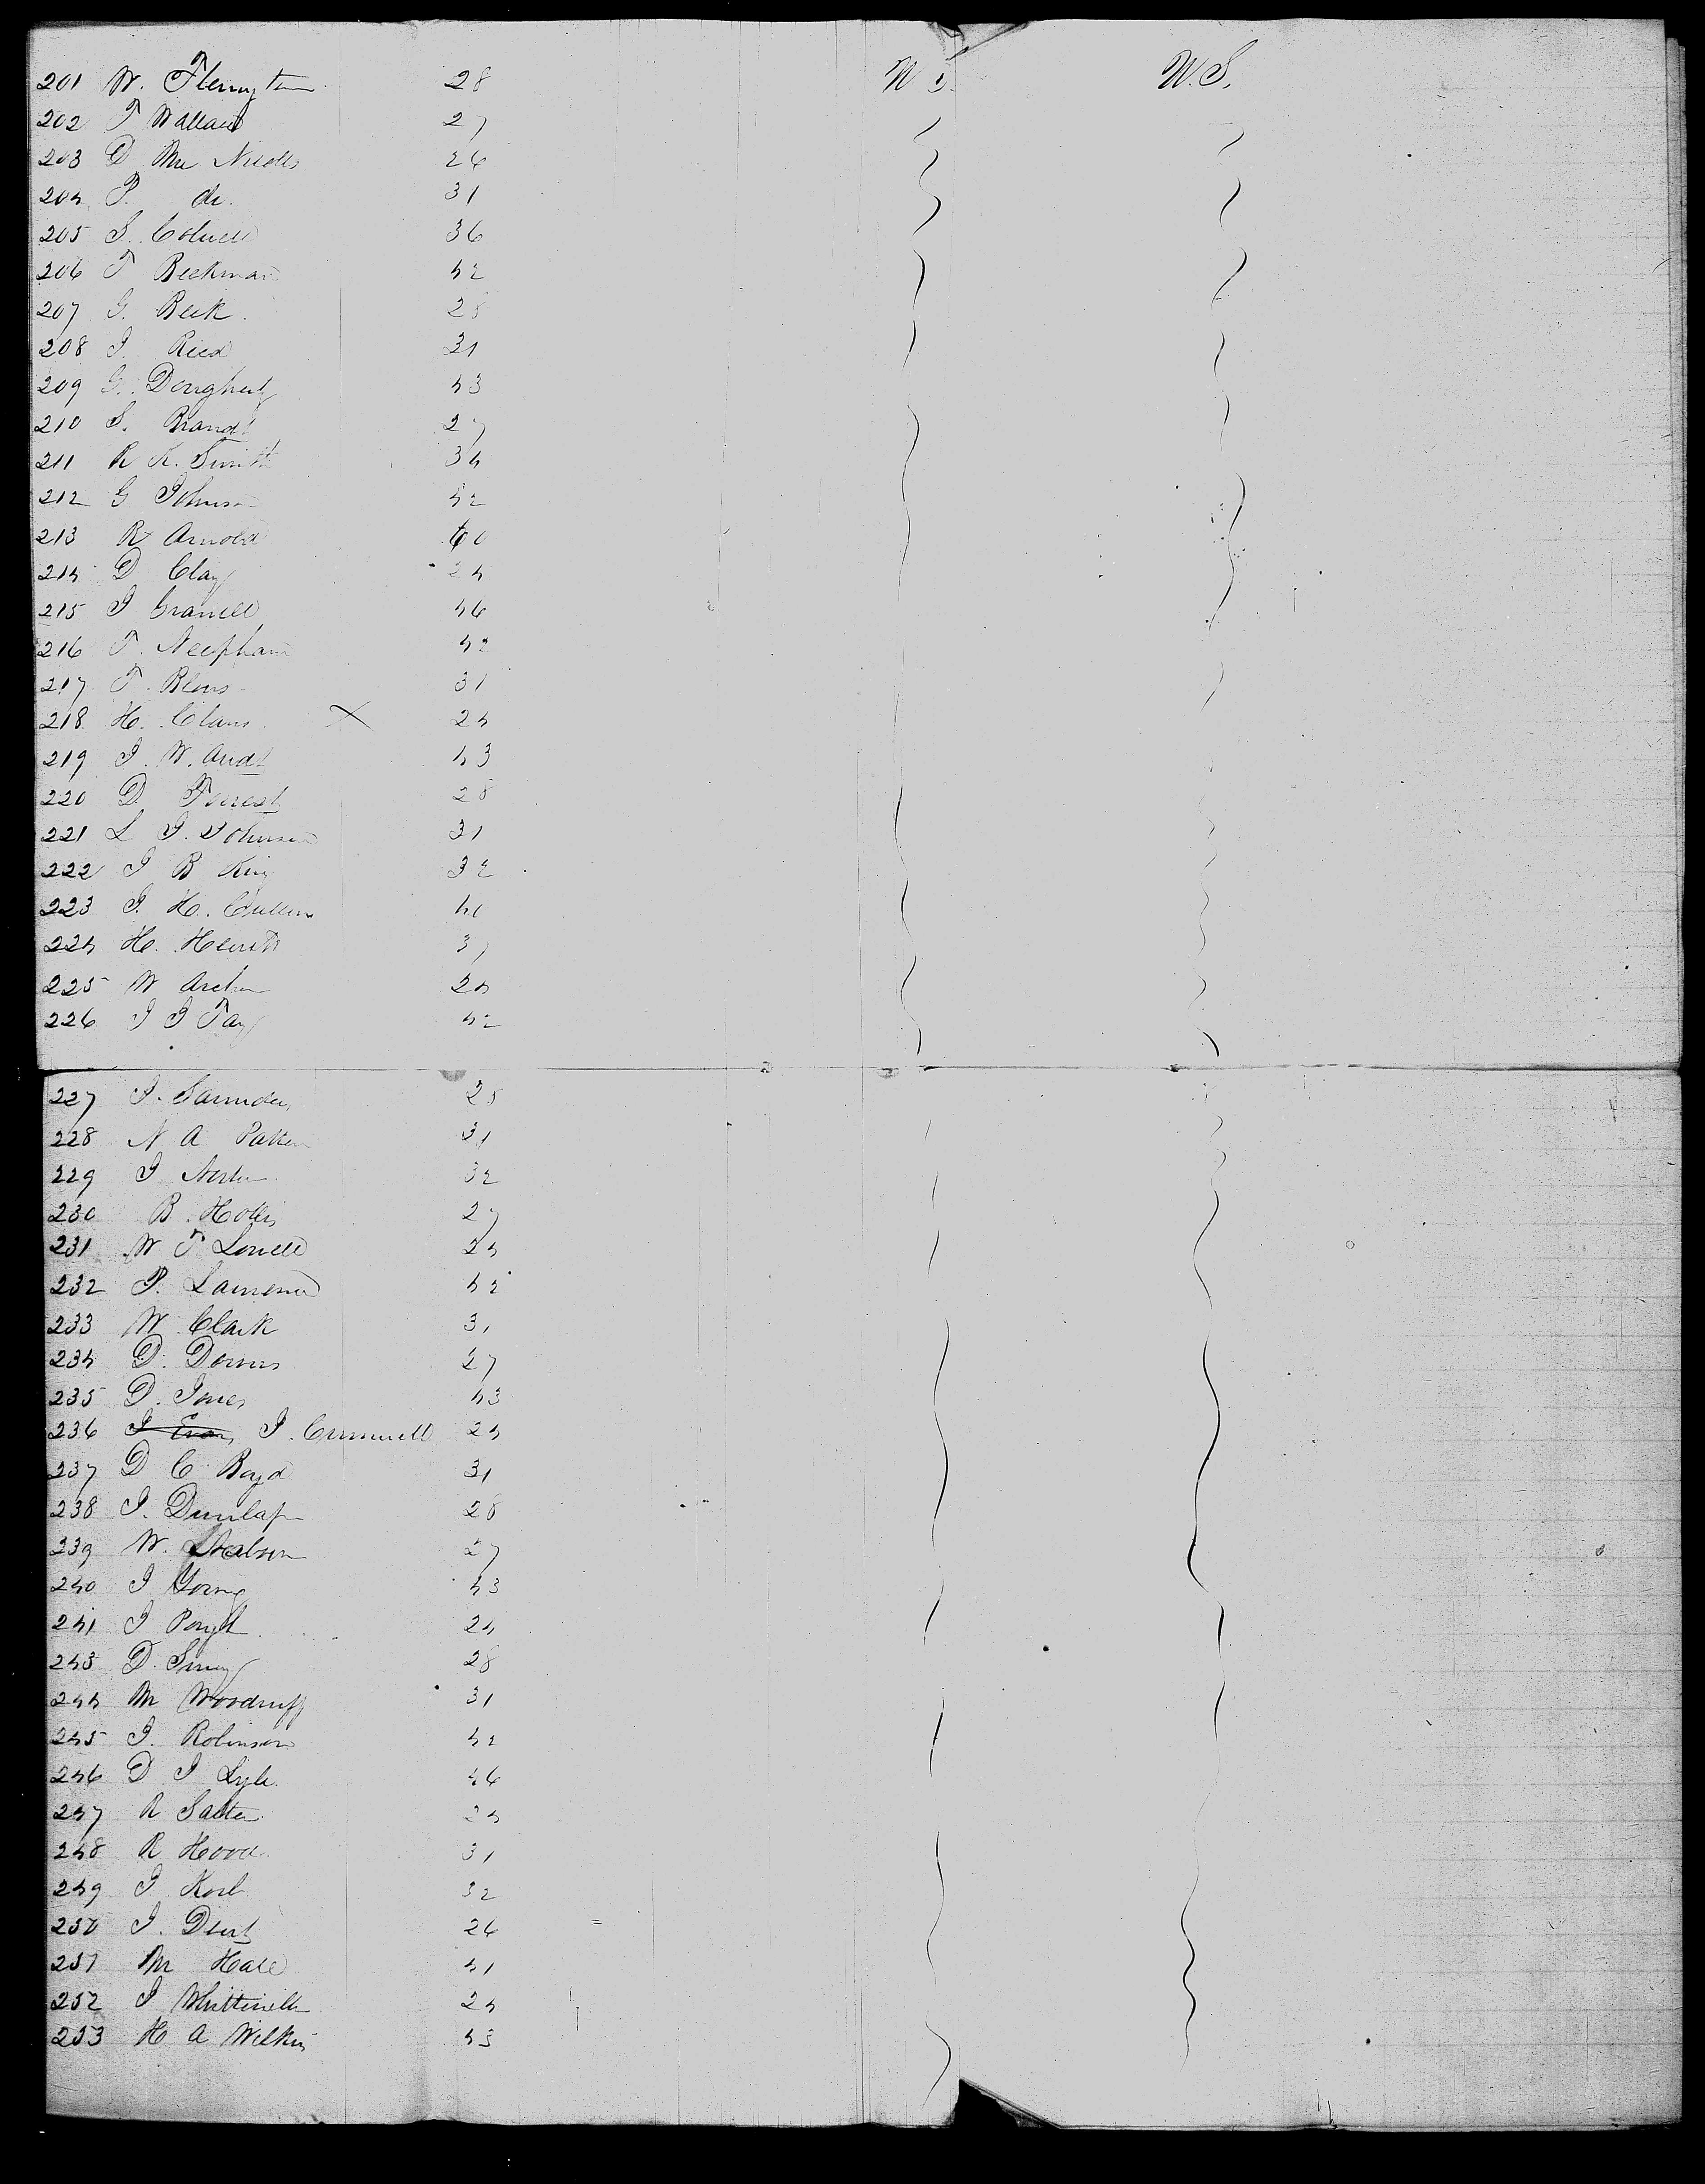 201 W. Flemington 28 U.S. U.S.
202 T Wallace 27
203 D Mc Nichols 26
204 P. do. 31
205 S. Colwell 36
206 T Beekman 42
207 G. Beek 28
208 J. Reed 31
209 G. Dougherty 43
210 S. Brandt 27
211 R K. Smith 34
212 G Johnson 42
213 R Arnold 60
214 D Clay 24
215 J 46
216 T. 42
217 T. 31
218 H. X 24
219 J. W. Andt 43
220 D Forrest 28
221 L J. Johnson 31
222 J B King 32
223 J. H. Cullen
224 H. Hewitt
225 W Archer 24
226 J J Fay 42
227 J. Saunders 28
228 N A Patten 31
229 J 32
230 B. Hollis 27
231 W T Lowell 24
232 P. Lawrence 42
233 W Clark 31
234 D. Downs 27
235 D. Jones 43
236 J Evans J. Cromwell 24
237 D C Boyd 31
238 J. Dunlap 28
239 W. 27
240 J Young 43
241 J 24
243 D. 28
244 M Woodruff 31
245 J. Robinson 42
246 D J Lyle 46
247 R Salter 24
248 R Hood 31
249 J 32
250 J. Dent 26
251 M Hall 41
252 J 24
253 H A Wilkins 43